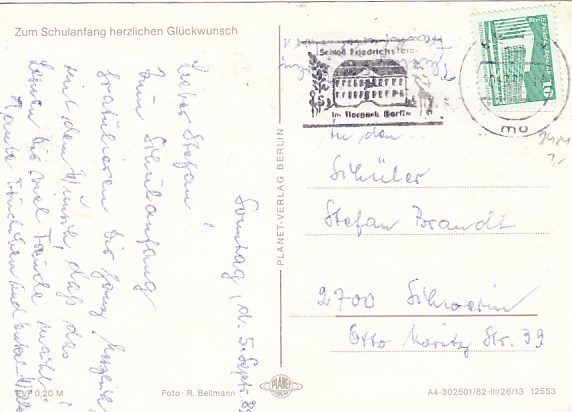 Zum Schulanfang herzlichen Glückwunsch
Sonntag, d. 5. Sept.
Lieber Stefan!
Zum Schulanfang
gratulieren wir ganz herzlich,
mit dem Wunsch, daß das
Lernen dir viel Freude macht!
Tante
und
EVP 0,20 M
Foto: R. Bellmann
PLANET-VERLAG BERLIN
PLANET
VERLAG
A4-302501/82-III/26/13 12553
Schloß Friedrichsfelde
im Tierpark Berlin
10
mo
An den
Schüler
Stefan Brandt
2700 Schwerin
Otto Moritz Str. 39